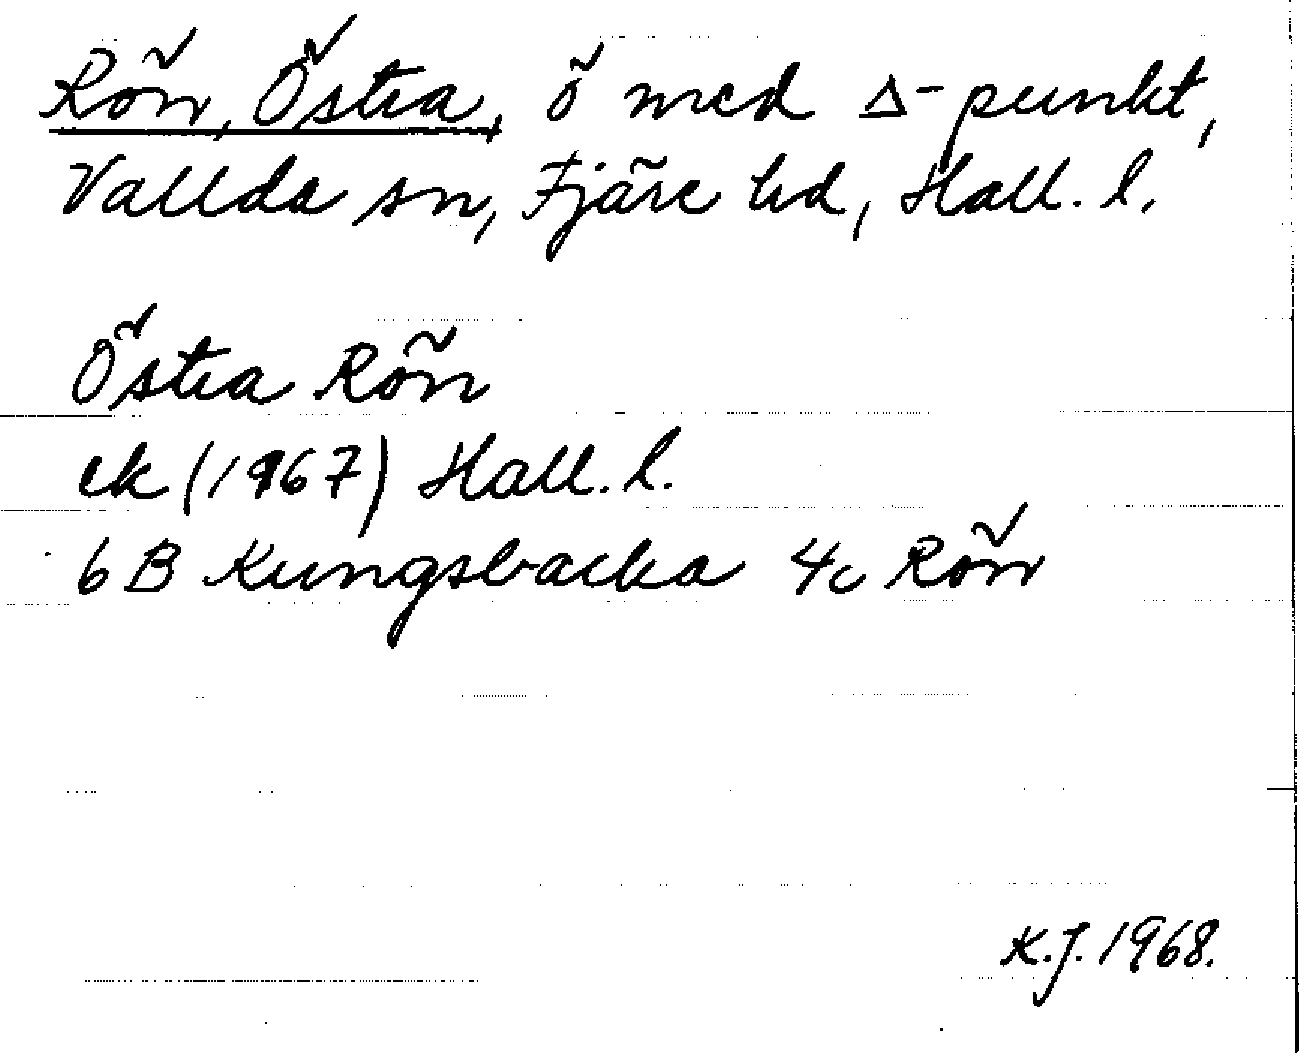 Rön, Östra, ö med Δ-punkt,
Vallda sn, Fjäre hd, Hall. l.
Östra Rön
ek (1967) Hall. l.
6 B Kungsbacka 4c Rön
K.J. 1968.